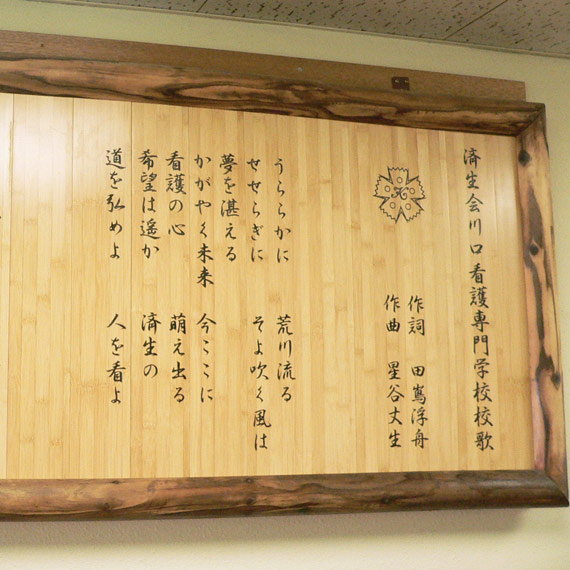 済生会川口看護専門学校校歌
作詞 田嶌浮舟
作曲 星谷丈生
うららかに 荒川流る
せせらぎに そよ吹く風は
夢を湛える
かがやく未来 今ここに
看護の心 萌え出る
希望は遥か 済生の
道を弘めよ 人を看よ